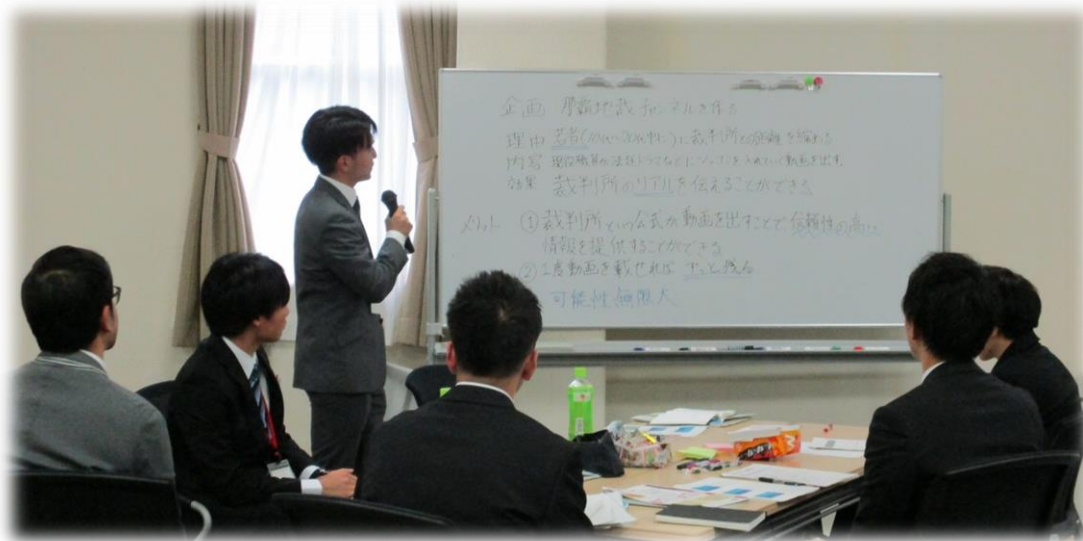 企画 那覇地裁チャンネルを作る
理由 若者(10代〜20代中心)に裁判所との距離を縮める
内容 現役職員が法廷ドラマなどにツッコミを入れていく動画を出す
効果 裁判所のリアルを伝えることができる
メリット ①裁判所という公式が動画を出すことで信頼性の高い
情報を提供することができる
②1度動画を載せれば ずっと残る
可能性無限大